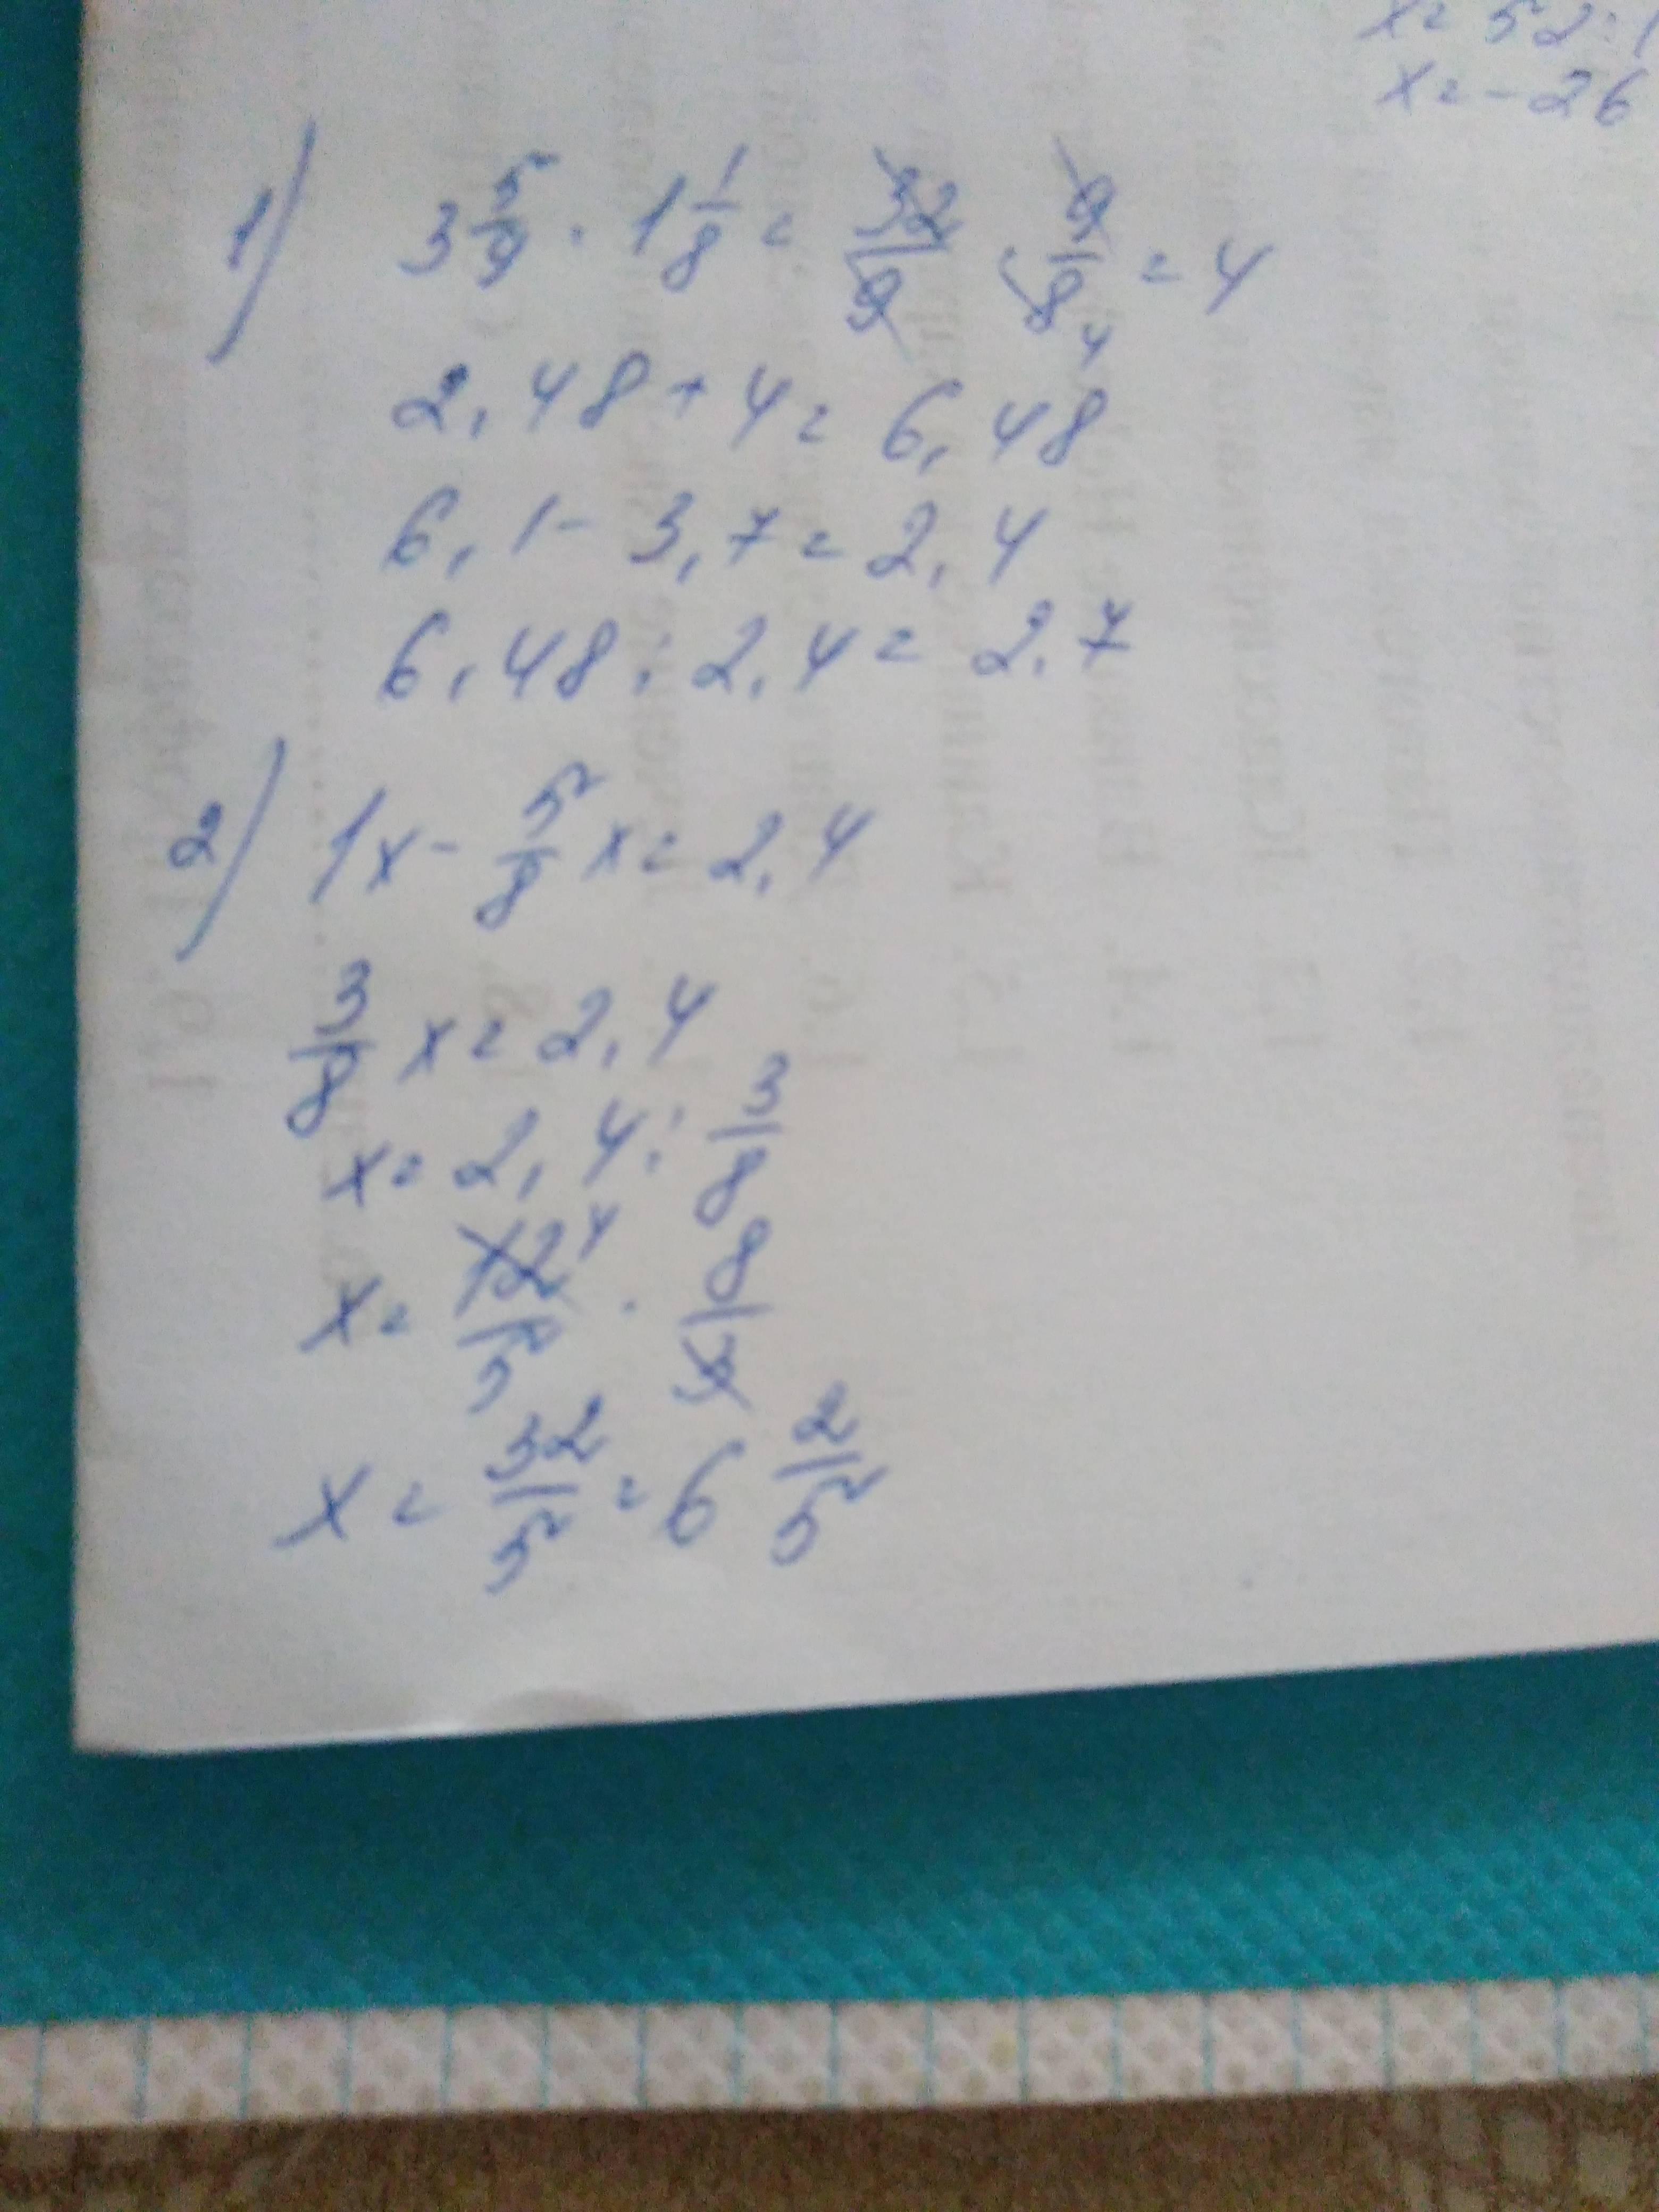 x = 52 : 1
x = -26
1) 3 5/9 · 1 1/8 = 32/9 · 9/8 4 = 4
2,48 + 4 = 6,48
6,1 - 3,7 = 2,4
6,48 : 2,4 = 2,7
2) 1x - 5/8 x = 2,4
3/8 x = 2,4
x = 2,4 : 3/8
x = 12 4/5 · 8/3
x = 32/5 = 6 2/5